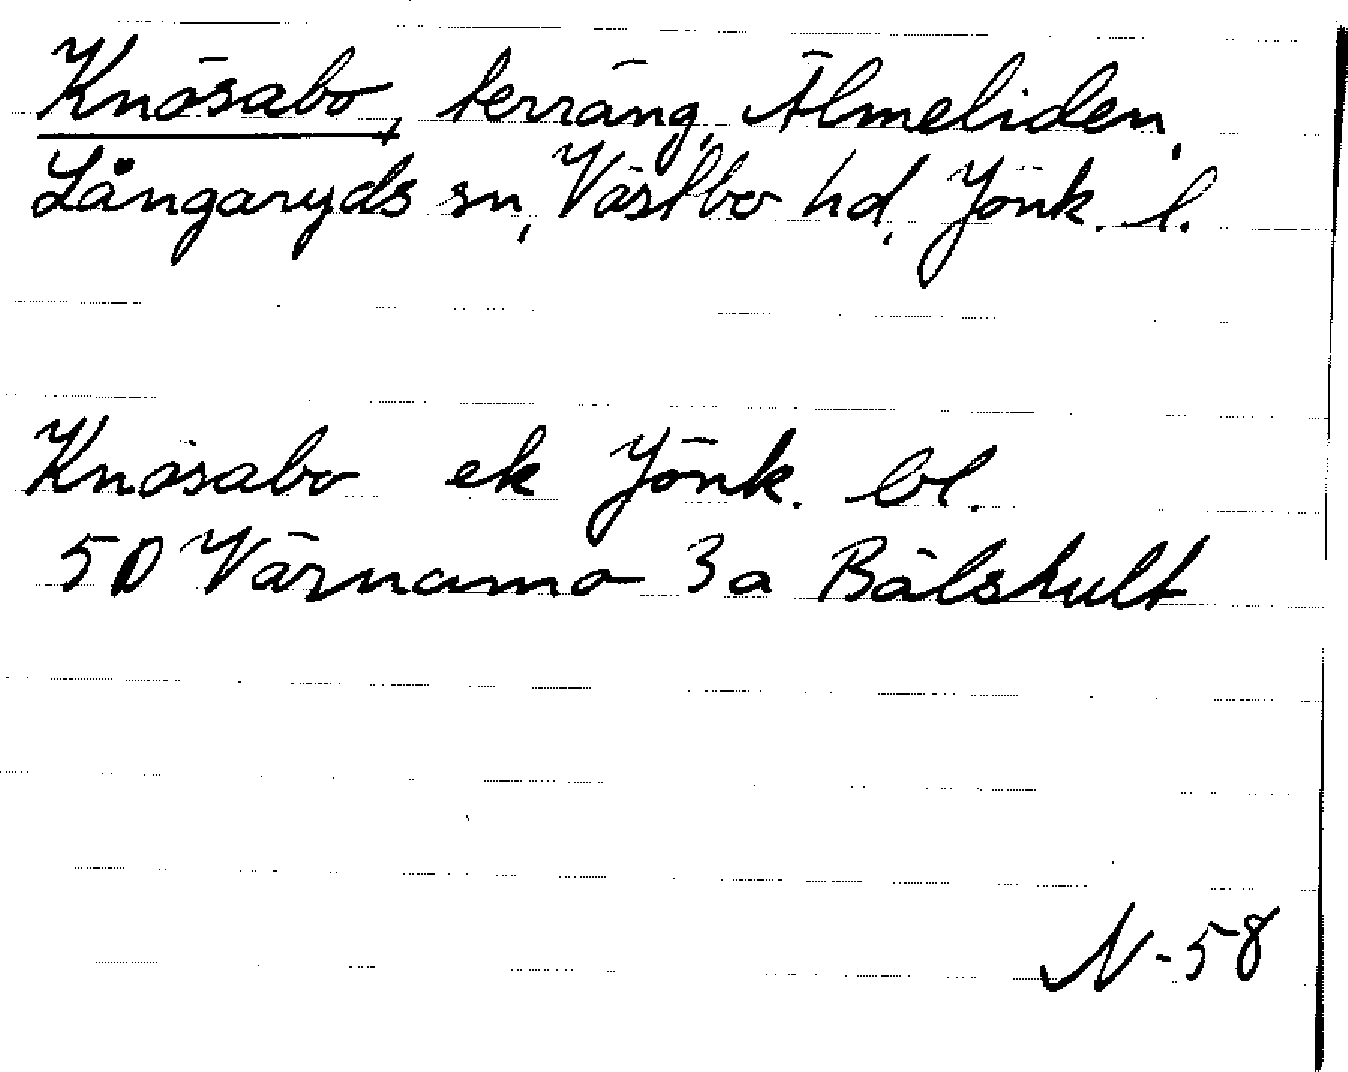 Knösabo, terräng, Älmeliden,
Långaryds sn, Västbo hd, Jönk. l.
Knösabo ek Jönk. bl.
5D Värnamo 3a Bälshult
N-58